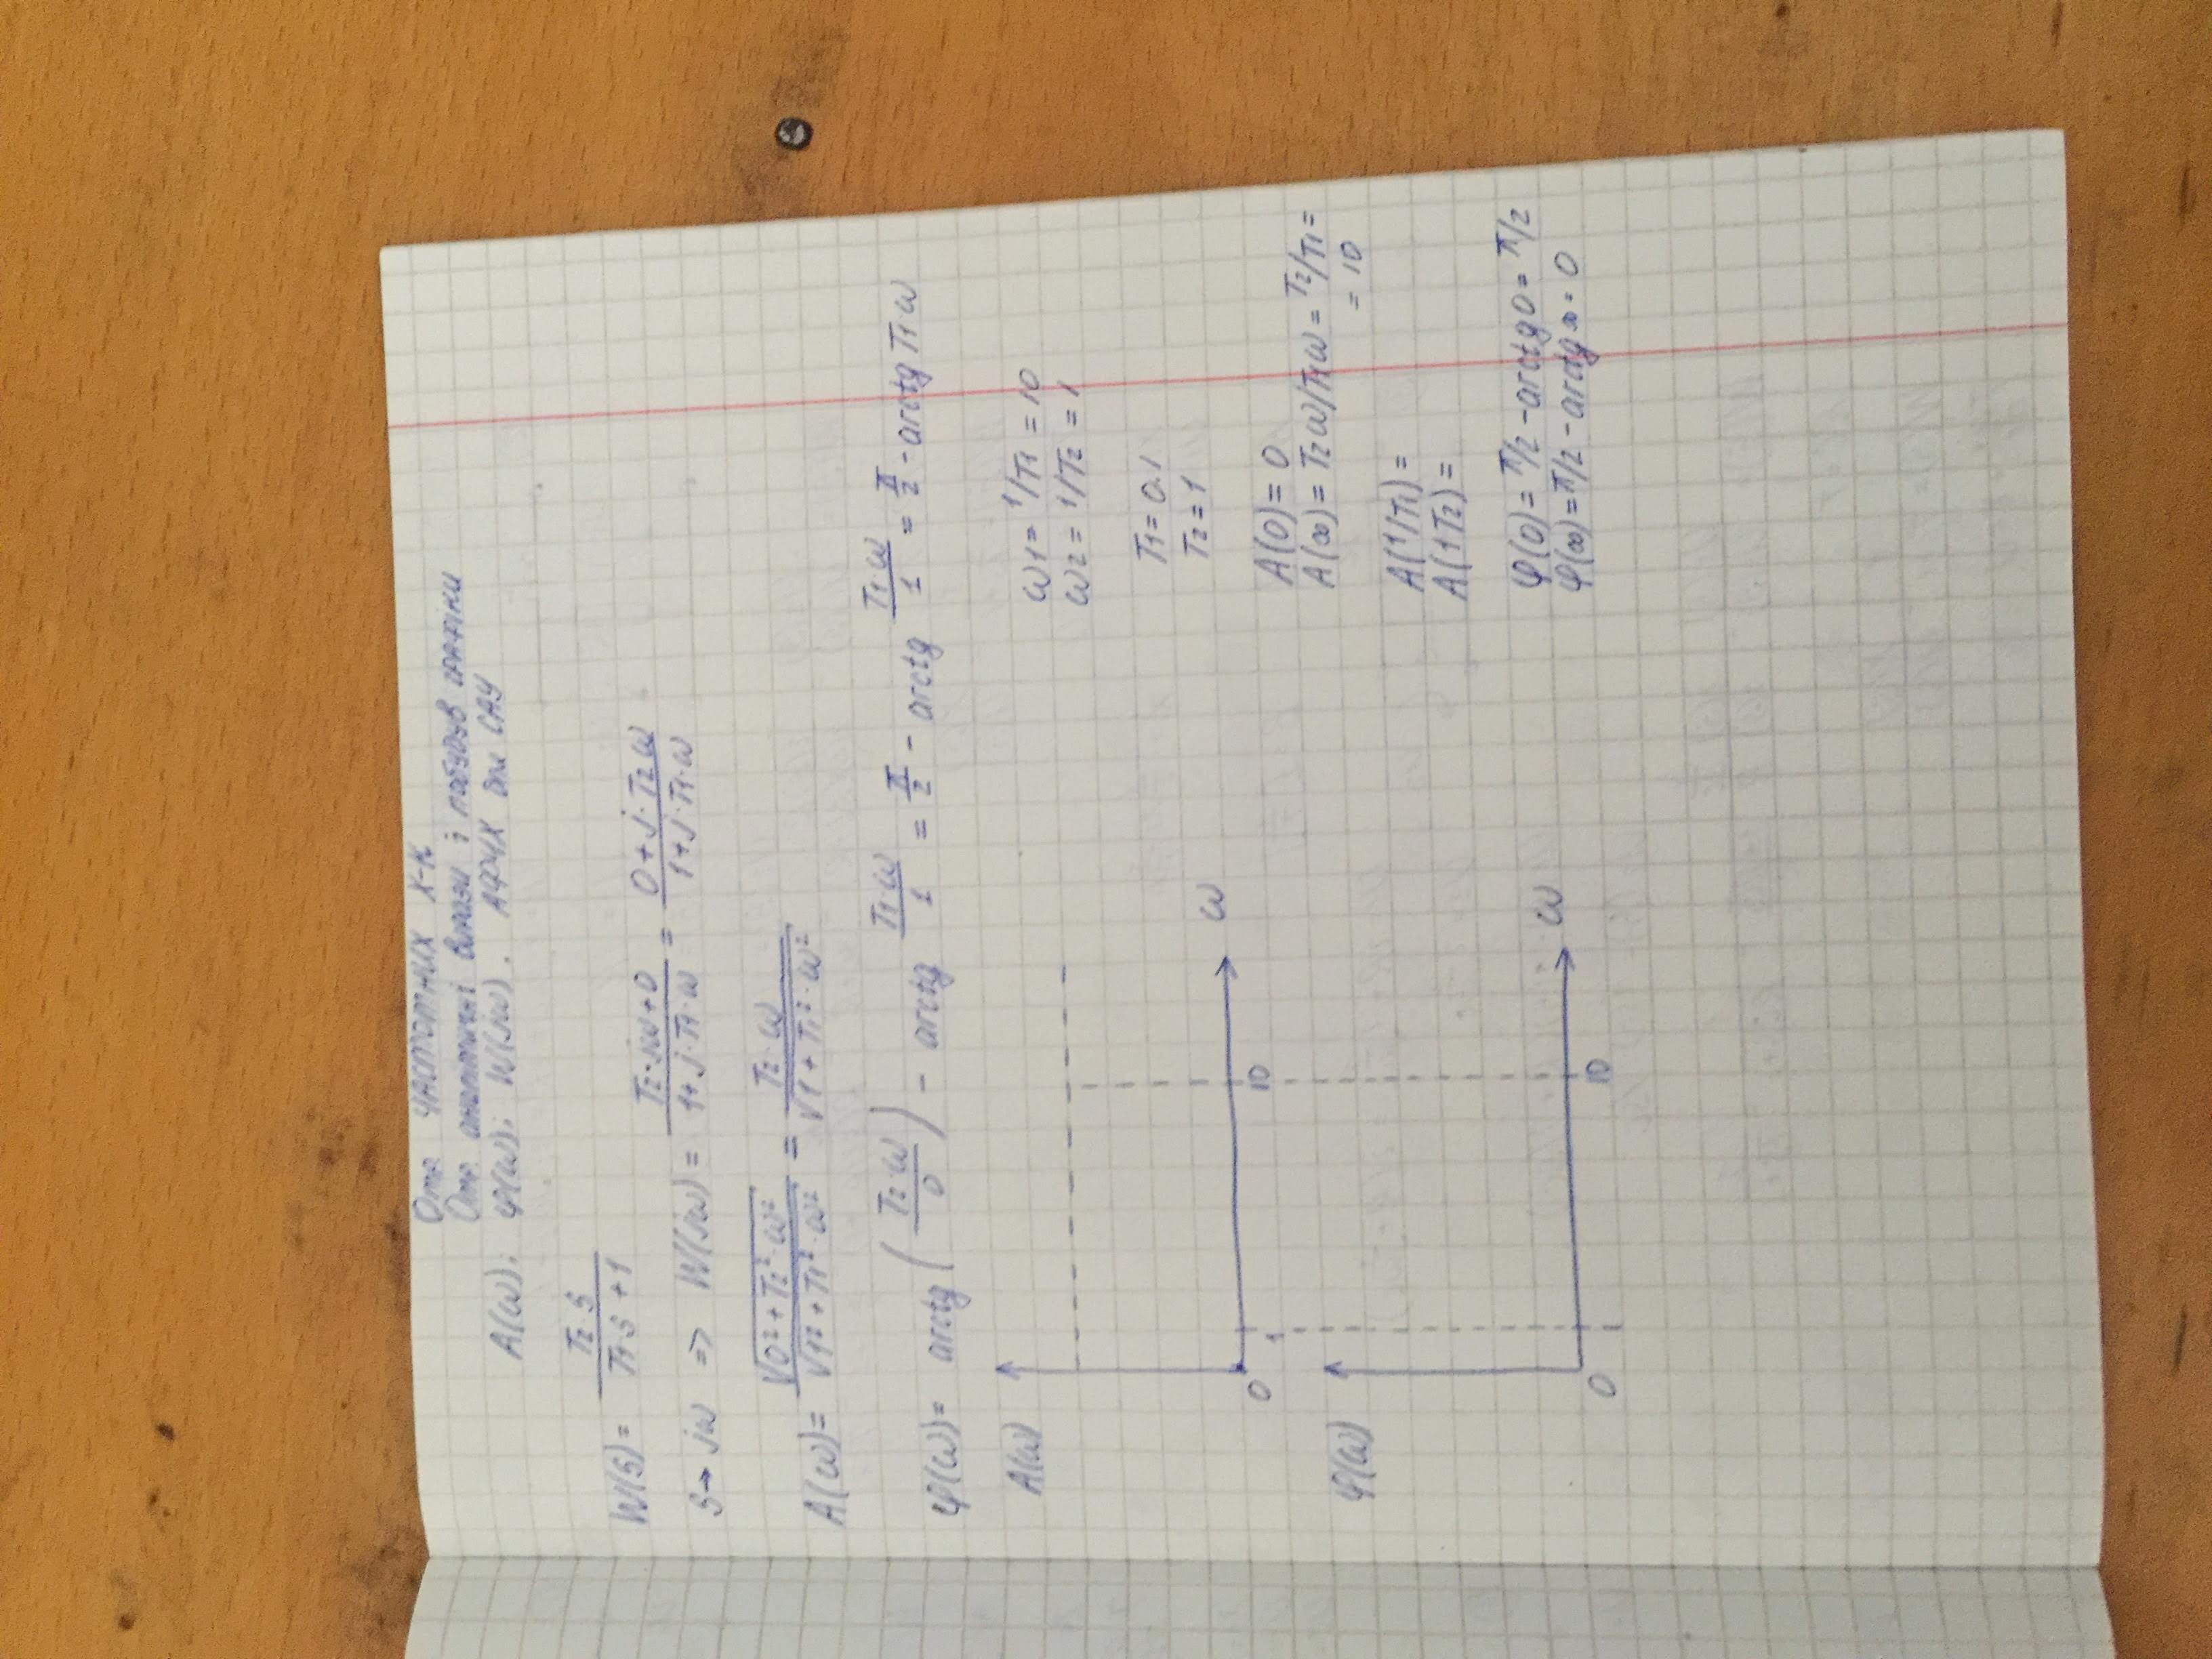 Отр. частотних х-к
Отр. аналітичні вирази і побудув графіки
A(ω); φ(ω); W(jω). АФЧХ для САУ
W(s) = T2·s / T1·s + 1
s → jω => W(jω) = T2·jω+0 / 1+j·T1·ω = 0+j·T2ω / 1+j·T1·ω
A(ω) = √0²+T2²·ω² / √1²+T1²·ω² = T2·ω / √1+T1²·ω²
φ(ω) = arctg (T2·ω / 0) - arctg T1·ω / 1 = π/2 - arctg T1·ω / 1 = π/2 - arctg T1·ω
A(ω)
ω
0
1
10
φ(ω)
ω
0
10
ω1 = 1/T1 = 10
ω2 = 1/T2 = 1
T1 = 0.1
T2 = 1
A(0) = 0
A(∞) = T2ω/T1ω = T2/T1 =
= 10
A(1/T1) =
A(1T2) =
φ(0) = π/2 - arctg 0 = π/2
φ(∞) = π/2 - arctg ∞ = 0